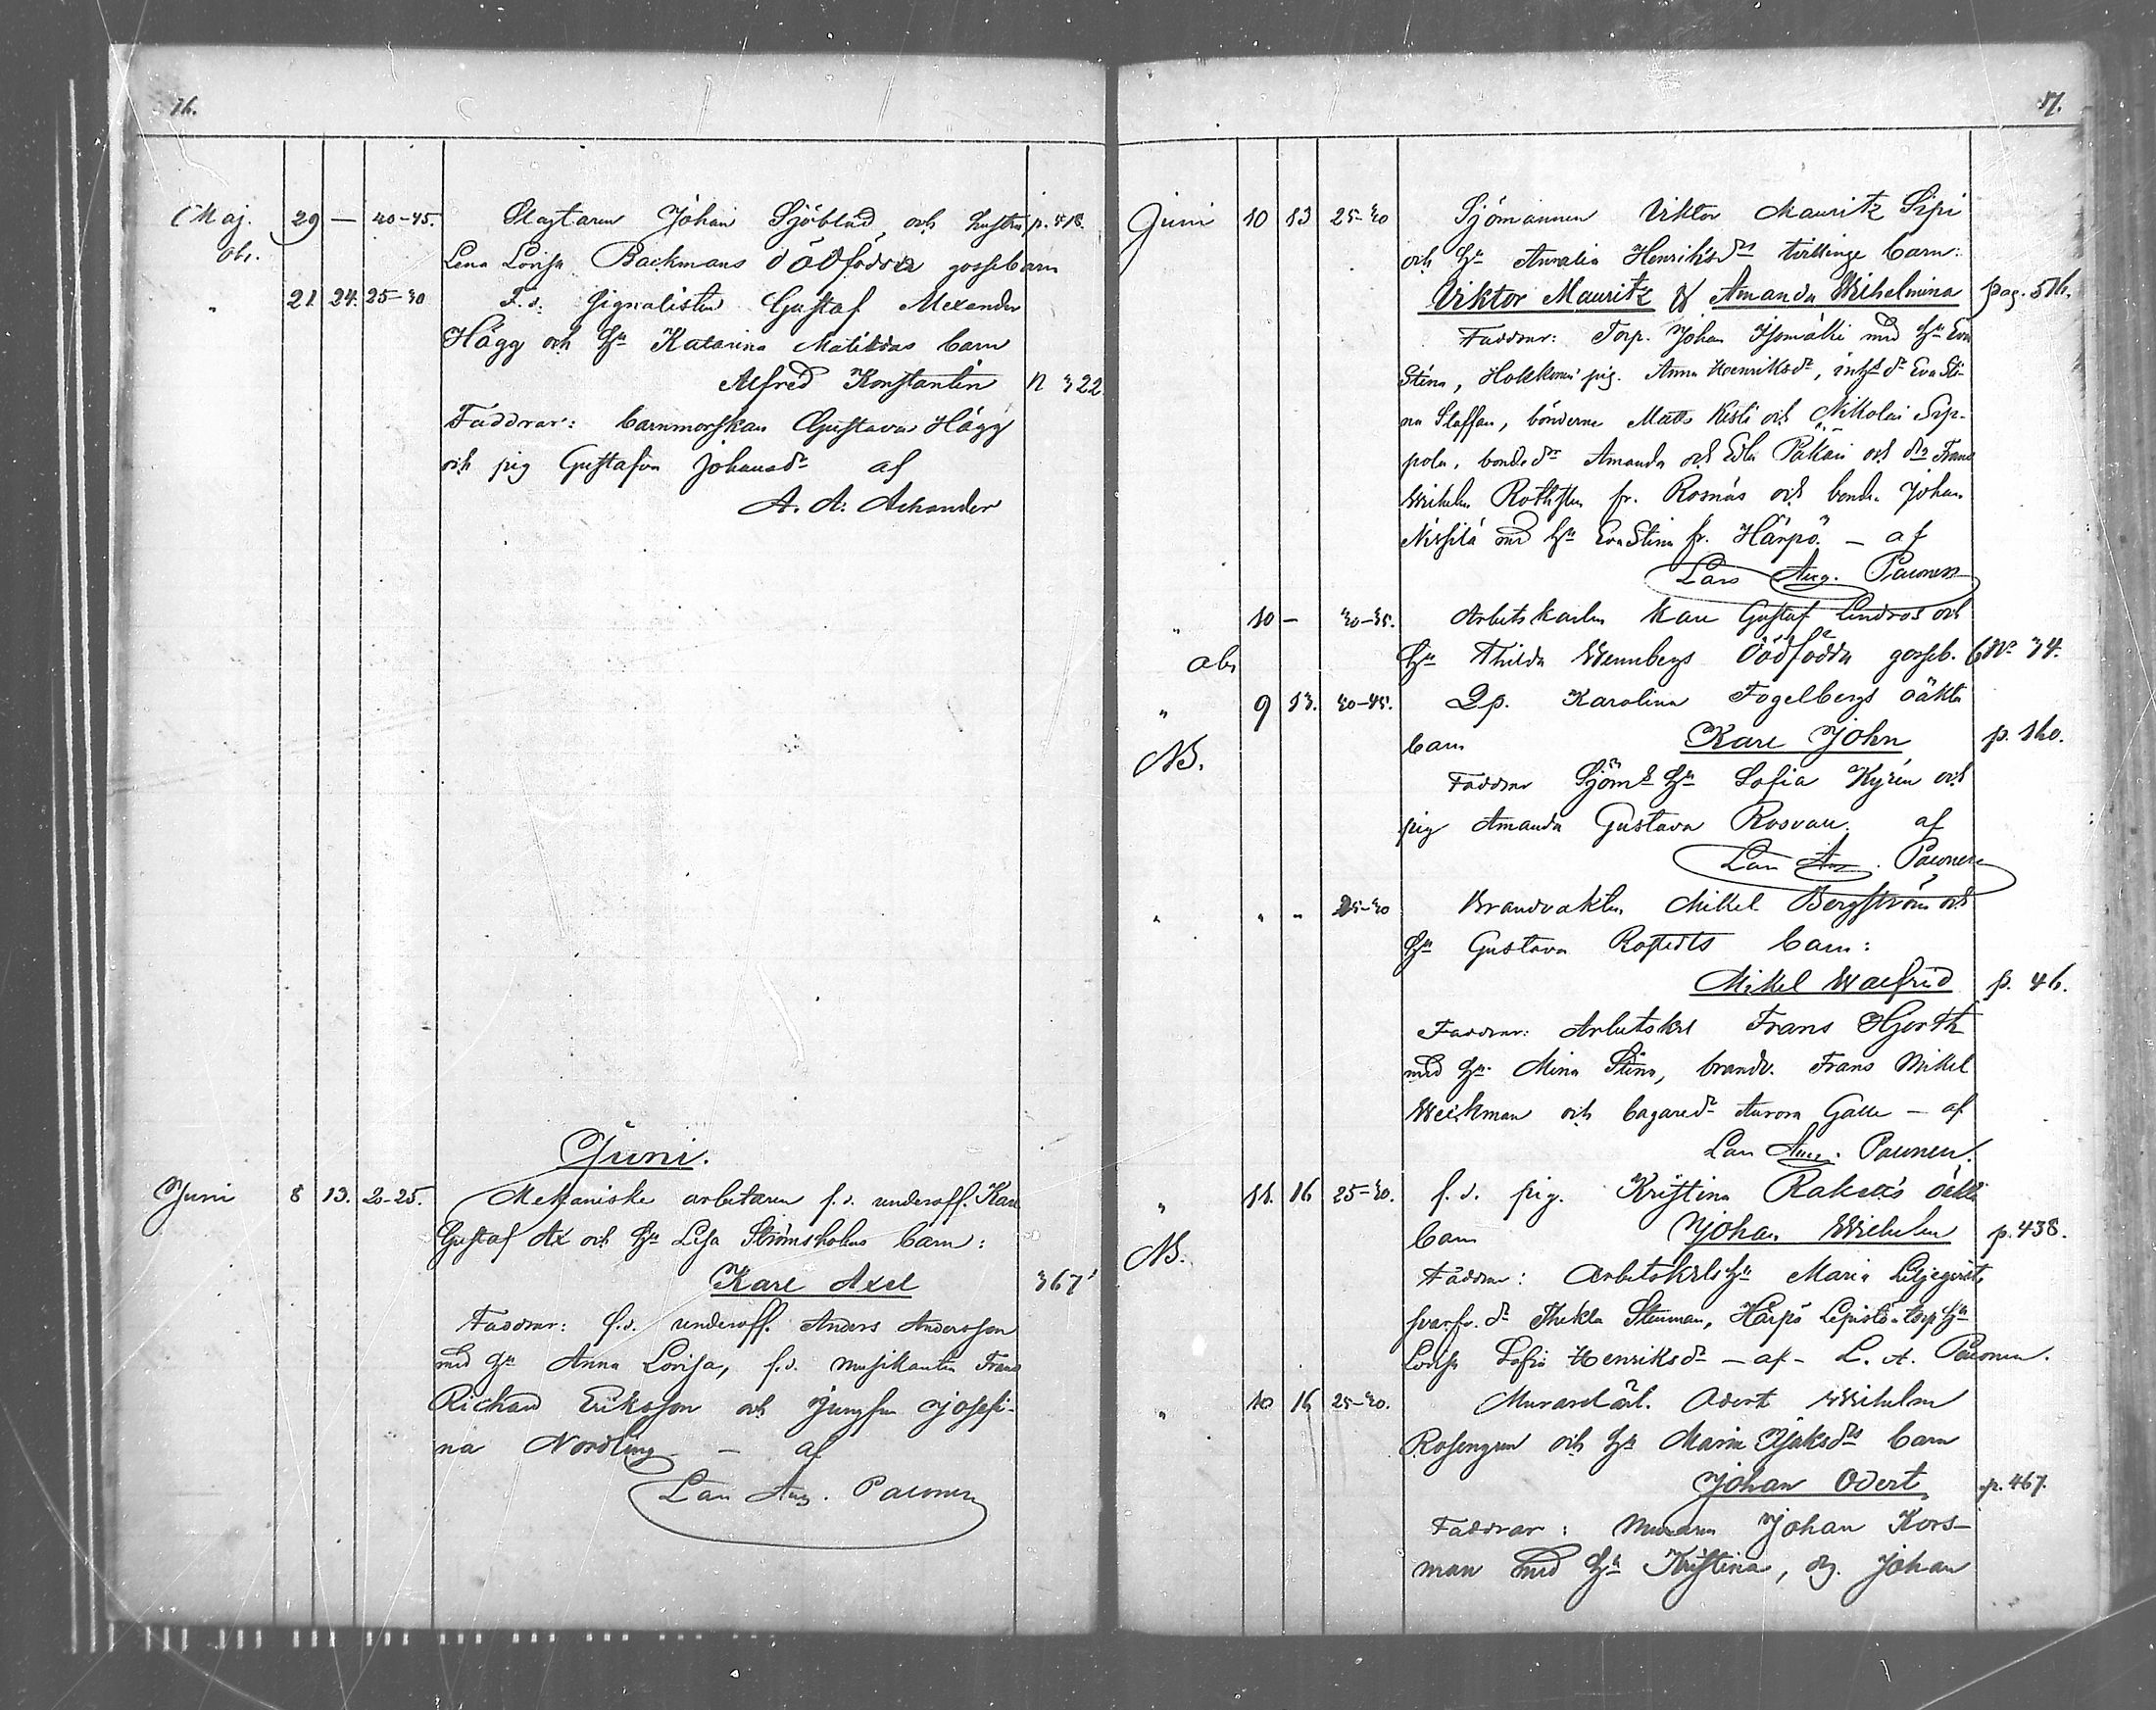 16.
Maj. 29 — 40-45. Slagtaren Johan Sjöblad, och hustru p. 418.
obs. Lena Lovisa Backmans dödfödda gossebarn
" 21 24. 25-30 F.d. Signalisten Gustaf Alexander
Hägg och Hu Katarina Matildas barn
Alfred Konstantin n 322
Faddrar: barnmorskan Gustava Hägg
och pig Gustafva Johansdr af
A. A. Achander
Juni.
Juni 8 13. 20-25. Mekaniske arbetaren f.d. underoff. Karl
Gustaf Ax och Hu Lisa Strömsholms barn:
Karl Axel 367
Faddrar: f.d. underoff. Anders Andersson
med Hu Anna Lovisa, f.d. musikanten Frans
Richard Eriksson och Jungfru Josefi-
na Nordling — af
Lars Aug. Paunen
17.
Juni 10 13 25-30 Sjömannen Viktor Mauritz Sipi
och Hu Amalia Henriksdrs tvillinge barn:
Viktor Mauritz & Amanda Wilhelmina pag. 516.
Faddrar: Torp. Johan med Hu Eva
Stina, pig. Anna Henriksdr, dr Eva Sti-
na Staffan, bönderne Matts och Nikolai Sip-
pola, bondedr Amanda och Edla och Frans
Wilhelm fr. Rosnäs och bond. Johan
med Hu Eva Stina fr. Härpö. — af
Lars Aug. Paunen
" 10 — 30-35. Arbetskarlen Karl Gustaf Lindros och
obs Hu Thilda Wennbergs dödfödda gosseb. No 34.
" 9 13. 40-45. Qp. Karolina Fogelbergs oäkta
NB. barn Karl John p. 160.
Faddrar Sjöms Hu Sofia Kyrén och
pig Amanda Gustava Rosvall. af
Lars Aug. Paunen
" " " 25-30 Brandvakten Mikel Bergström och
Hu Gustava Rostedts barn:
Mikel Walfrid p. 46.
Faddrar: Arbetskrl Frans Hjorth
med Hu Mina Stina, brandv. Frans Mikel
Weckman och bagaredr Aurora Galle — af
Lars Aug. Paunen.
" 11. 16 25-30. f.d. pig. Kristina oäkta
NB. barn Johan Wilhelm p. 438.
Faddrar: Arbetskrls Hu Maria
svarfv. dr Thekla Stenman, Härpö torp Hu
Lovisa Sofia Henriksdr — af — L. A. Paunen.
" 10 16 25-30. Odert Wilhelm
Rosengren och Hu Maria barn
Johan Odert p. 467.
Faddrar: Muraren Johan Kors-
man med Hu Kristina, Johan